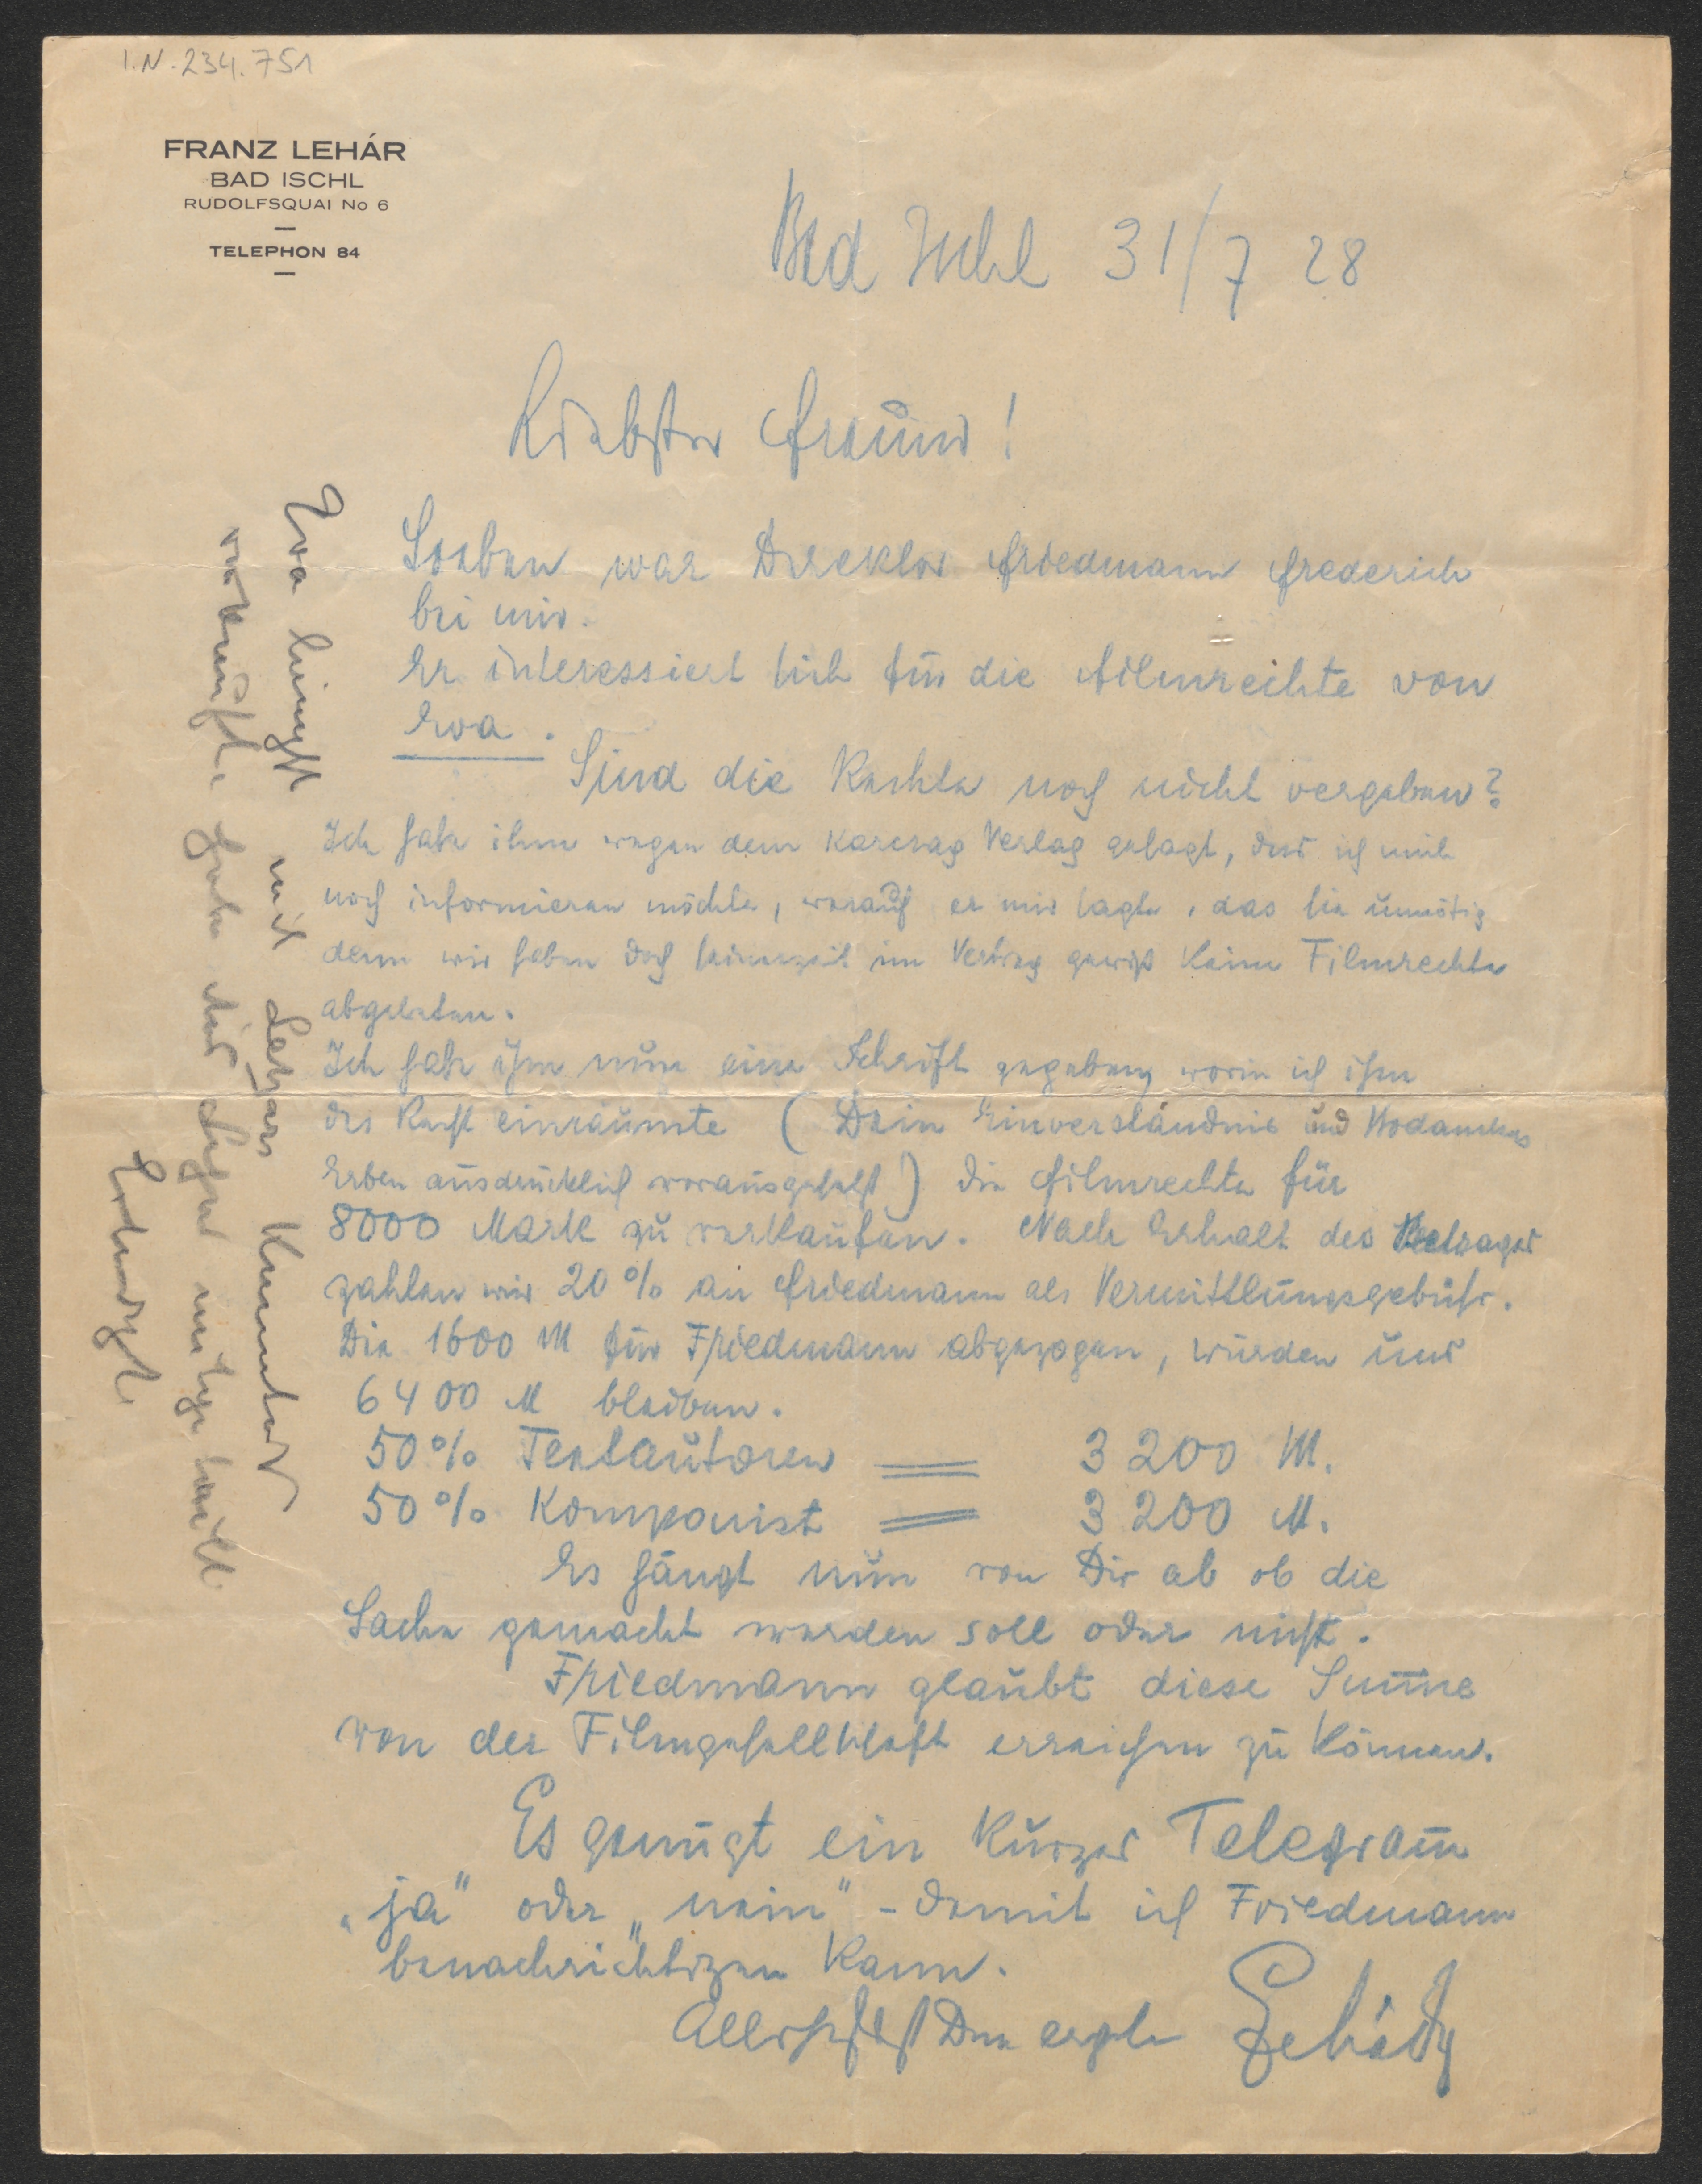 I.N. 234.751
FRANZ LEHÁR
BAD ISCHL
RUDOLFSQUAI No 6
TELEPHON 84
Bad Ischl 31/7 28
Liebster Freund!
Soeben war Direktor Friedmann Frederich
bei mir.
Er interessiert sich für die Filmrechte von
Eva.
Sind die Rechte noch nicht vergeben?
Ich habe ihm wegen dem Karczag Verlag gesagt, dass ich mich
noch informieren möchte, worauf er mir sagte, das sei unnötig
denn wir haben doch seinerzeit im Vertrag gewiß keine Filmrechte
abgetreten.
Ich habe ihm nun eine Schrift gegeben, worin ich ihm
das Recht einräumte (Dein Einverständnis und Bodanskys
Erben ausdrücklich vorausgesetzt) die Filmrechte für
8000 Mark zu verkaufen. Nach Erhalt des Betrages
zahlen wir 20% an Friedmann als Vermittlungsgebühr.
Die 1600 M für Friedmann abgezogen, würden uns
6400 M bleiben.
50% Textautoren = 3200 M.
50% Komponist = 3200 M.
Es hängt nun von Dir ab ob die
Sache gemacht werden soll oder nicht.
Friedmann glaubt diese Sum̄e
von der Filmgesellschaft erreichen zu können.
Es genügt ein kurzes Telegram̄
„ja" oder „nein" - damit ich Friedmann
benachrichtigen kann.
Allerherzlichst Dein ergeb Lehár
Eva längst mit Lehárs Kenntnis
verkauft. Habe das Lehár mitgeteilt.
Erledigt.